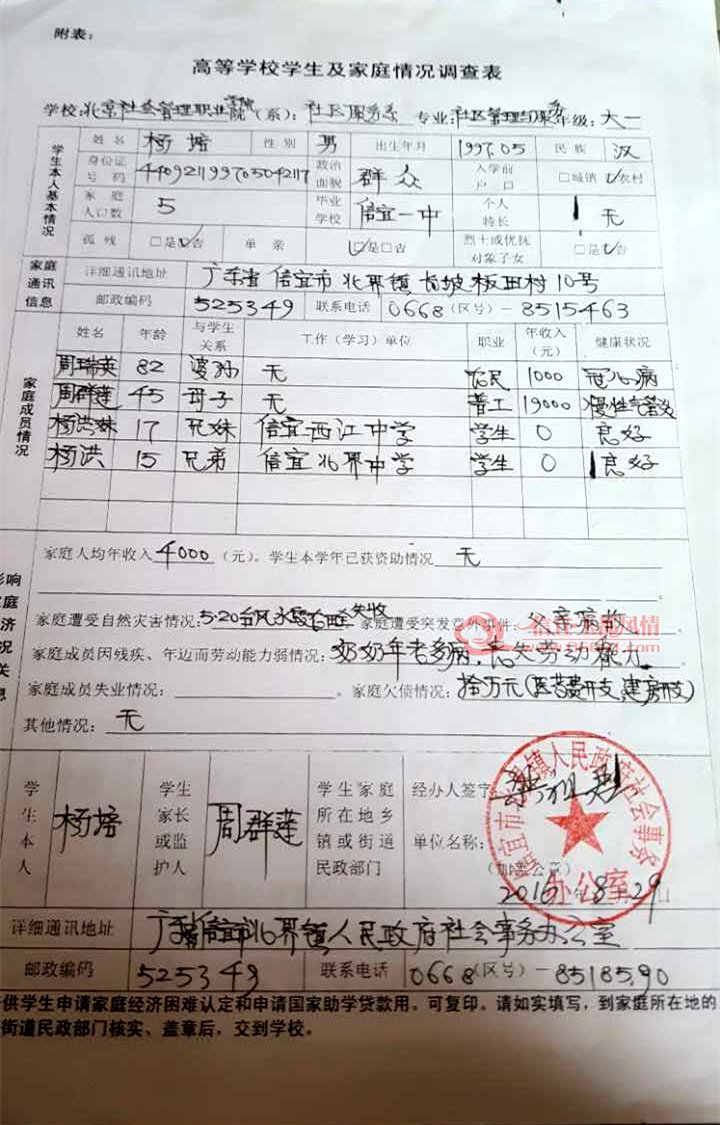 附表：
高等学校学生及家庭情况调查表
学校：北京社会管理职业学院（系）：社区服务系 专业：社区管理与服务 年级：大一
学生本人基本情况
姓名 杨培 性别 男 出生年月 1997.05 民族 汉
身份证号码 440921199705042117 政治面貌 群众 入学前户口 □城镇 ☑农村
家庭人口数 5 毕业学校 信宜一中 个人特长 无
孤残 □是☑否 单亲 ☑是□否 烈士或优抚对象子女 □是☑否
家庭通讯信息
详细通讯地址 广东省信宜市北界镇高坡板田村10号
邮政编码 525349 联系电话 0668（区号）-8515463
家庭成员情况
姓名 年龄 与学生关系 工作（学习）单位 职业 年收入（元） 健康状况
周瑞英 82 婆孙 无 农民 1000 冠心病
周群莲 45 母子 无 普工 19000 慢性气管炎
杨洪妹 17 兄妹 信宜西江中学 学生 0 良好
杨洪 15 兄弟 信宜北界中学 学生 0 良好
家庭人均年收入4000（元）。学生本学年已获资助情况 无
家庭遭受自然灾害情况：5.20台风 失收 家庭遭受突发意外事件：父亲病故。
家庭成员因残疾、年迈而劳动能力弱情况：奶奶年老多病，丧失劳动能力。
家庭成员失业情况： 。家庭欠债情况：拾万元(医药费开支，建房开支)
其他情况：无
学生本人 杨培 学生家长或监护人 周群莲 学生家庭所在地乡镇或街道民政部门 经办人签字：
单位名称：
（加盖公章）
2016年8月29日
信宜市北界镇人民政府社会事务办公室
详细通讯地址 广东省信宜市北界镇人民政府社会事务办公室
邮政编码 525349 联系电话 0668（区号）-8518590
供学生申请家庭经济困难认定和申请国家助学贷款用。可复印。请如实填写，到家庭所在地的
街道民政部门核实、盖章后，交到学校。